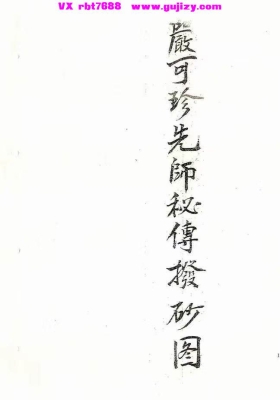 VX rbt7688 www.gujizy.com
嚴可珍先師秘傳撥砂图